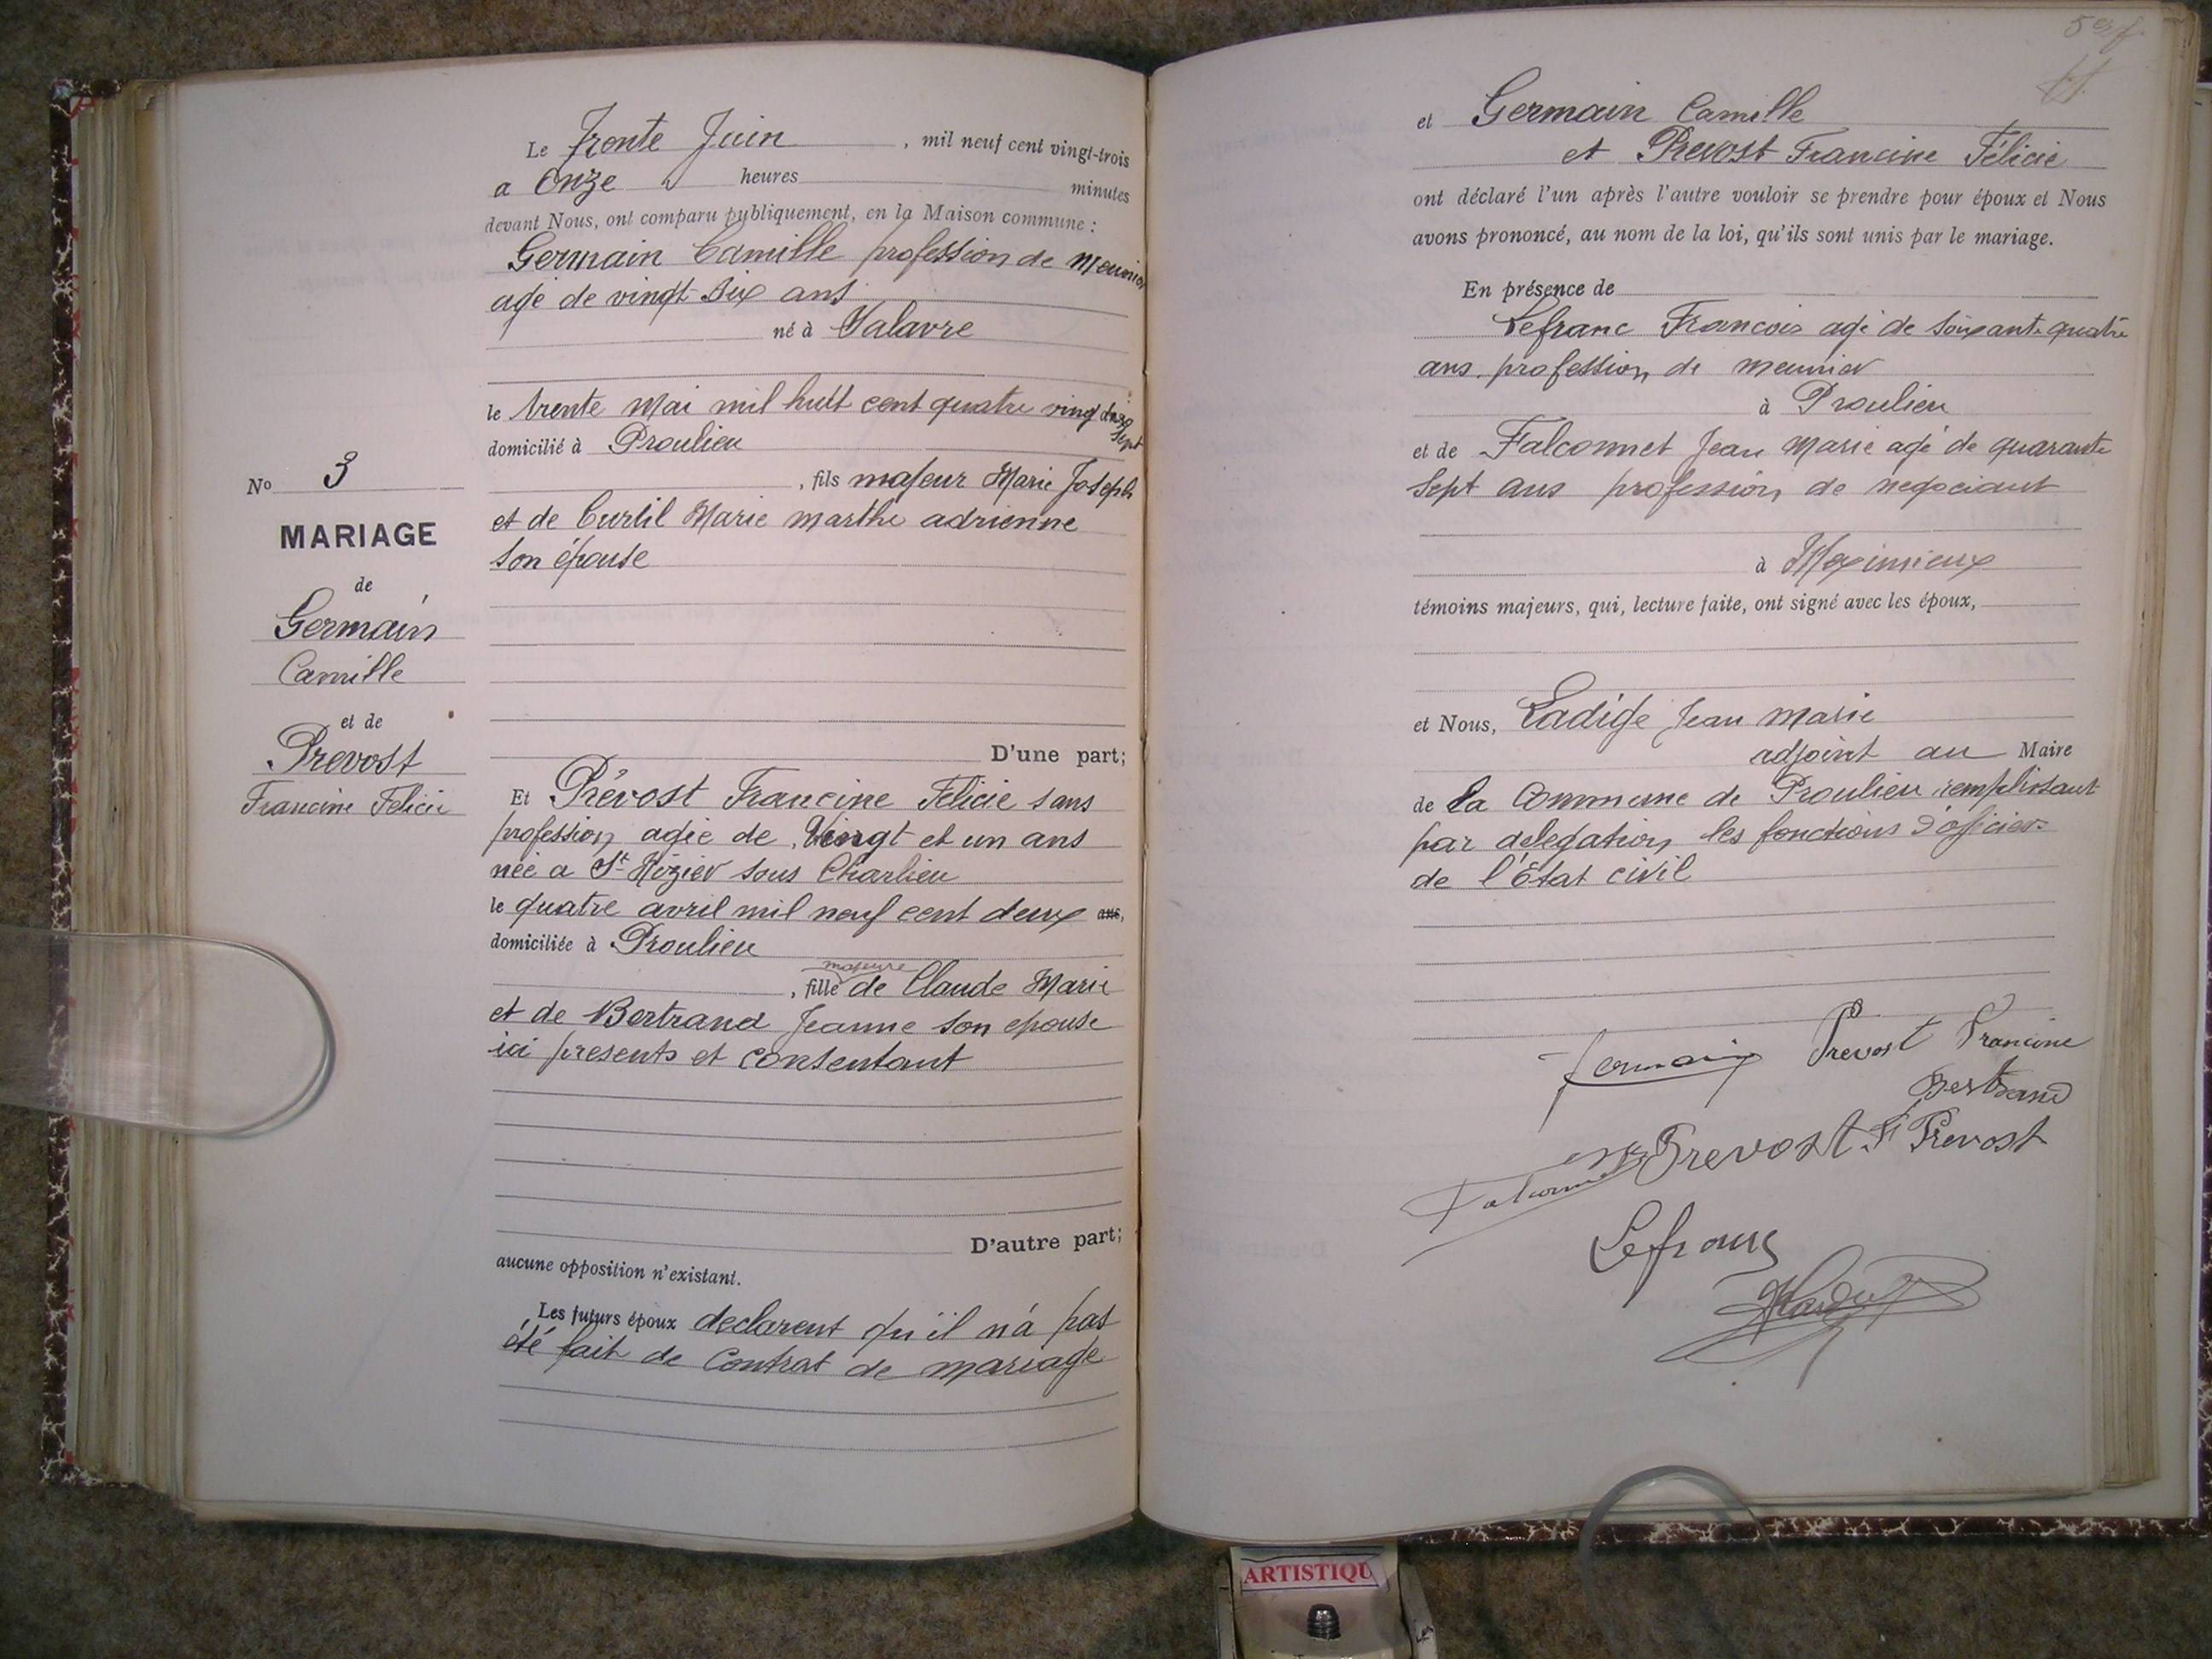 Le Trente Juin , mil neuf cent vingt-trois
a Onze heures minutes
devant Nous, ont comparu publiquement, en la Maison commune :
Germain Camille profession de Meunier
agé de vingt-six ans
né à Salavre
le trente Mai mil huit cent quatre vingt dix
sept
domicilié à Proulieu
, fils majeur Marie Joseph
et de Curtil Marie marthe adrienne
son épouse
No 3
MARIAGE
de
Germain
Camille
et de
Prevost
Francine Félicie
D'une part;
Et Prévost Francine Félicie sans
profession agée de Vingt et un ans
née a St Nizier sous Charlieu
le quatre avril mil neuf cent deux ans,
domiciliée à Proulieu
majeure
, fille de Claude Marie
et de Bertrand Jeanne son epouse
ici presents et consentant
D'autre part;
aucune opposition n'existant.
Les futurs époux declarent qu'il n'a pas
été fait de Contrat de mariage
et Germain Camille
et Prevost Francine Félicie
ont déclaré l'un après l'autre vouloir se prendre pour époux et Nous
avons prononcé, au nom de la loi, qu'ils sont unis par le mariage.
En présence de
Lefranc Francois agé de soixante quatre
ans profession de meunier
à Proulieu
et de Falconnet Jean Marie agé de quarante
sept ans profession de negociant
à Meximieux
témoins majeurs, qui, lecture faite, ont signé avec les époux,
et Nous, Ladige Jean Marie
adjoint au Maire
de la Commune de Proulieu remplissant
par delegation les fonctions d'officier
de l'État civil
Germain Prevost Francine
Bertrand
Prevost F Prevost
Falconnet
Lefranc
ARTISTIQU